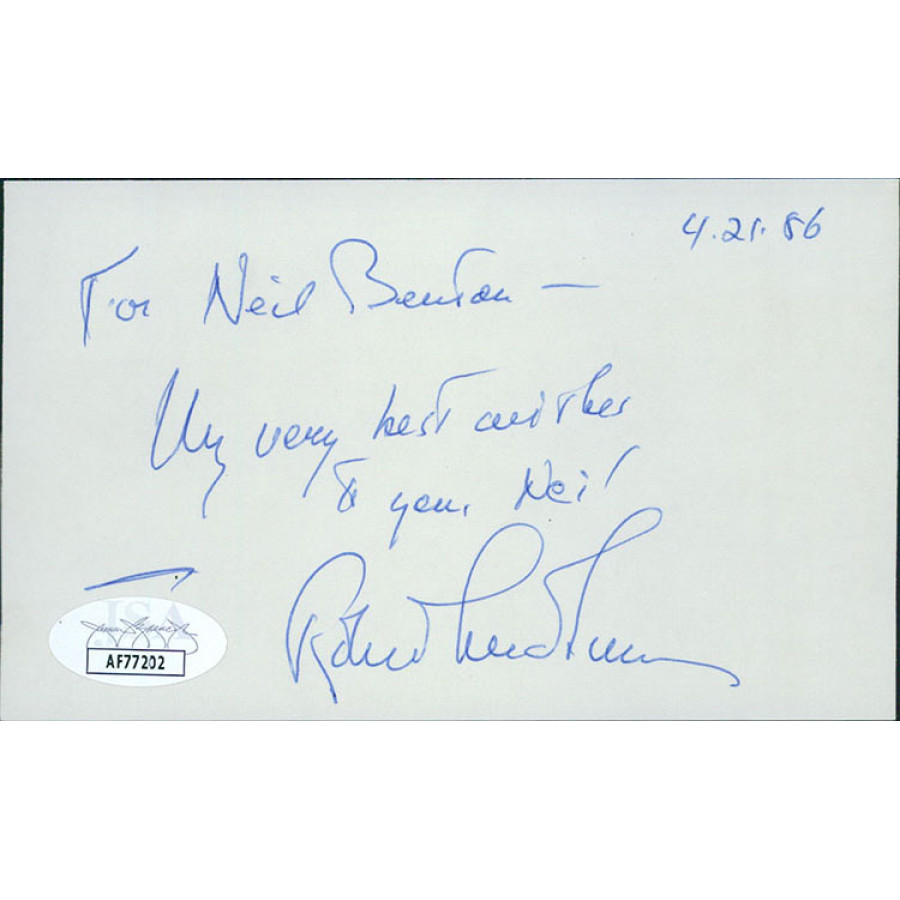 4.21.86
For Neil Benton —
My very best wishes
to you, Neil
Robert
JSA
AF77202